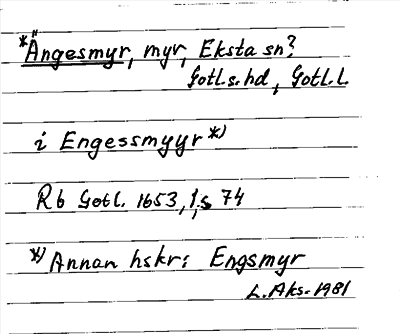 *Ängesmyr, myr, Eksta sn?
Gotl.s.hd, Gotl.l.
i Engessmyyr *)
Rb Gotl. 1653, 1, s 74
*) Annan hskr: Engsmyr
L. Aks. 1981